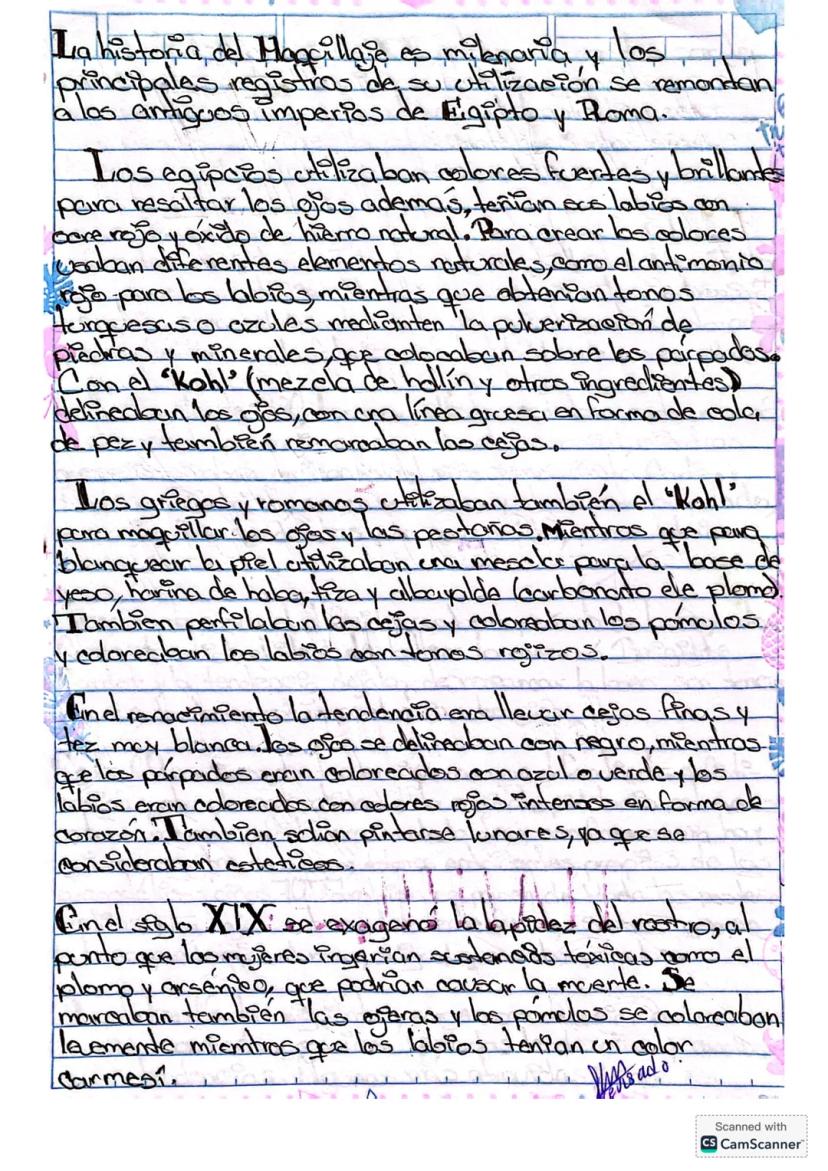 La historia del Maqcillaje es milenaria y los
principales registros de su utilización se remontan
a los antiguos imperios de Egipto y Roma.
Los egipcios utilizaban colores fuertes y brillantes
para resaltar los ojos además, teñian sus labios con
ocre rojo y óxido de hierro natural. Para crear los colores
usaban diferentes elementos naturales, como el antimonio
rojo para los labios, mientras que obtenian tonos
turquesas o azules medianten la pulverización de
piedras y minerales, que colocaban sobre los párpados.
Con el "Kohl" (mezcla de hollín y otros ingredientes)
delineaban los ojos, con una línea gruesa en forma de cola
de pez y también remarcaban las cejas.
Los griegos y romanos utilizaban también el "Kohl"
para maquillar los ojos y las pestañas. Mientras que para
blanquear la piel utilizaban una mescla para la base de
yeso, harina de haba, tiza y albayalde (carbonato de plomo)
Tambien perfilaban las cejas y coloreaban los pómulos
y coloreaban los labios con tonos rojizos.
En el renacimiento la tendencia era llevar cejas finas y
tez muy blanca. Los ojos se delineaban con negro, mientras
que los párpados eran coloreados con azul o verde y los
labios eran coloreados con colores rojos intensos en forma de
corazón. Tambien solian pintarse lunares, ya que se
consideraban esteticos.
En el siglo XIX se exageró la lapidez del rostro, al
punto que las mujeres ingerían sustancias tóxicas como el
plomo y arsénico, que podrian causar la muerte. Se
marcaban también las ojeras y los pómulos se coloreaban
levemende mientras que los labios tenían un color
carmesí.
Revisado
Scanned with
CS CamScanner